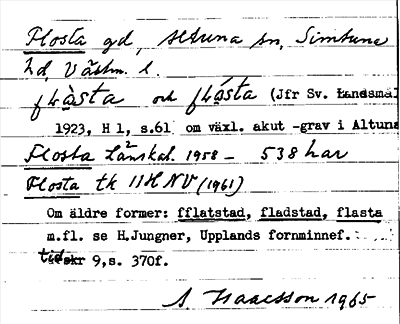 Flosta gd, Altuna sn, Simtuna
hd, Västm. l.
flàsta och flásta (Jfr Sv. Landsmål
1923, H 1, s.61 om växl. akut -grav i Altuna
Flosta Länskal. 1958 – 538 har
Flosta tk 11H NV (1961)
Om äldre former: fflatstad, fladstad, flasta
m.fl. se H.Jungner, Upplands fornminnef.
tidskr 9,s. 370f.
A Isaacsson 1965